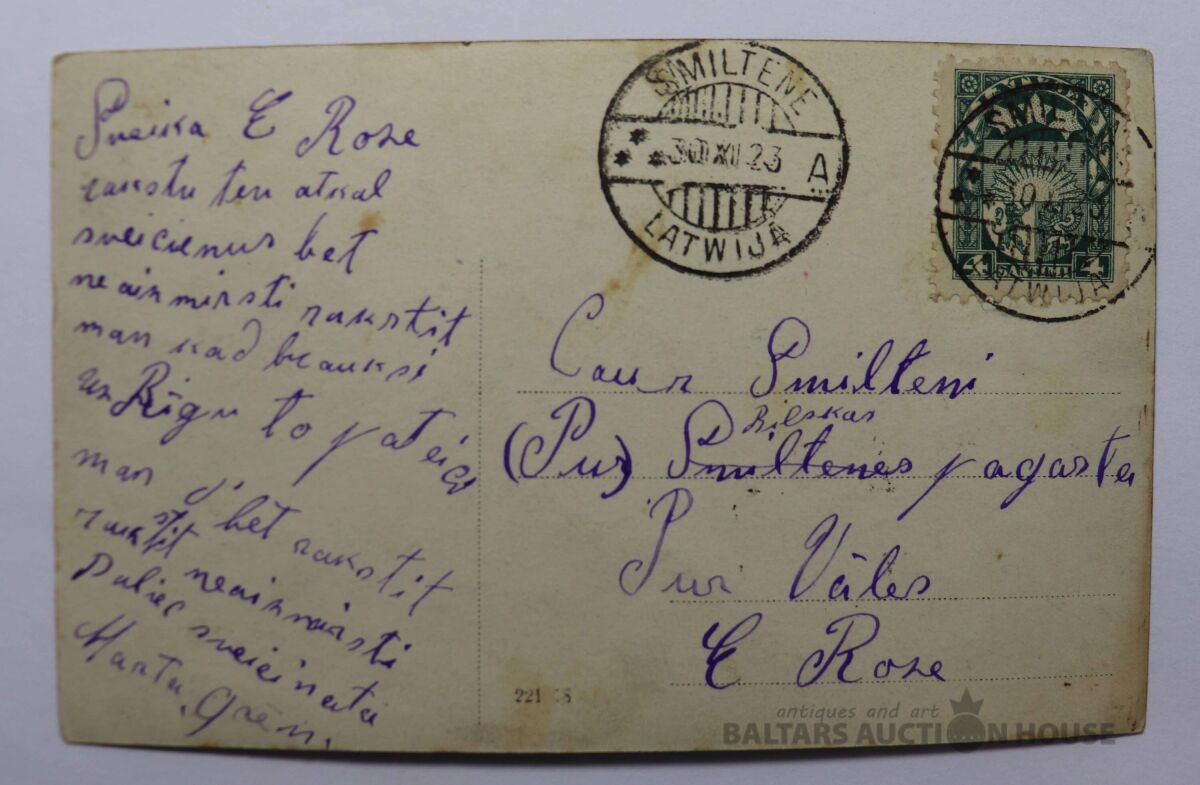 Sveika E Rose
rakstu tev atkal
sveicienus bet
neaismirsti rakstit
man kad brauksi
us Rīgu to pateici
man j bet rakstit
rakstit neaismirsti
Paliec sveicinata
Marta. Grēn.
SMILTENE
30 XII 23 A
LATWIJA
SMIL
30
LATWIJA
4 4
Caur Smilteni
Bilskas
(Pur) Smiltenes pagasta
Pur Vāles
E Rose
221
antiques and art
BALTARS AUCTION HOUSE